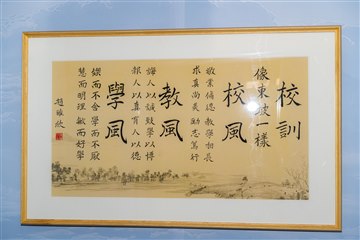 校訓
像東坡一樣
校風
敬業脩德教學相長
求真尚美勵志篤行
教風
誨人以誠教學以博
人以真育人以德
學風
鍥而不舍學而不厭
慧而明理敏而好學
趙